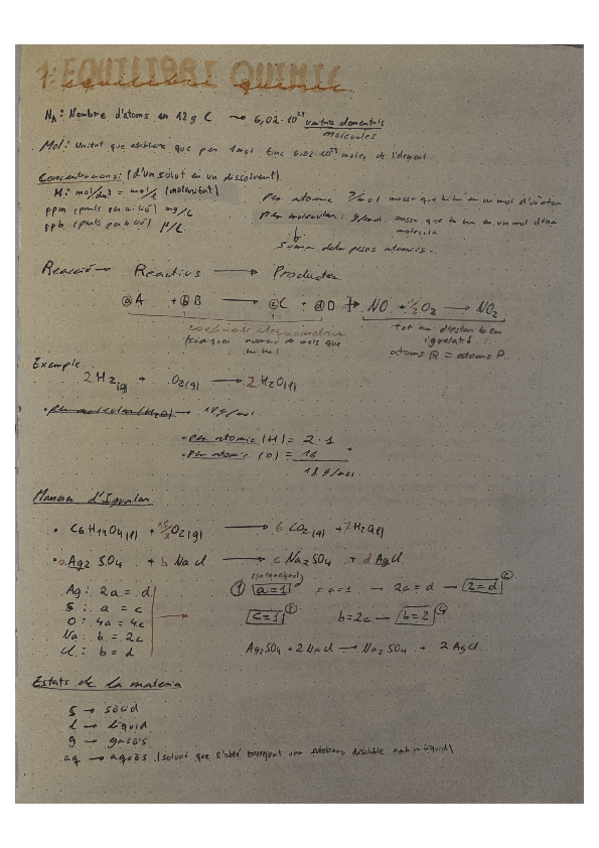 1: EQUILIBRI QUIMIC
NA: Nombre d'atoms en 12g C → 6,02·10²³ unitats elementals
molecules
Mol: Unitat que estableix que per 1mol tinc 6,02·10²³ moles de l'element
Concentracions: (d'un solut en un dissolvent)
M: mol/dm³ = mol/L (molaritat)
ppm (parts per milió) mg/L
ppb (parts per bilió) µ/L
pes atomic g/mol massa que hi ha en un mol d'un atom
pes molecular: g/mol. massa que hi ha en un mol d'una molecula
suma dels pesos atomics.
Reacció → Reactius → Productes
aA + bB → cC + dD
coeficients estequiometrics
numero de mols que
hi ha
NO + 1/2 O2 → NO2
Tot ha d'estar ben
igualat!
atoms R = atoms P
Exemple
2H2(g) + O2(g) → 2H2O(l)
· pes molecular (H2O) → 18g/mol
· pes atomic (H) = 2·1
· pes atomic (O) = 16
18 g/mol
Maneres d'Igualar
· C6H14O4(l) + 15/2 O2(g) → 6CO2(g) + 7H2O(l)
· aAg2SO4 + bNaCl → cNa2SO4 + dAgCl
Ag: 2a = d
S: a = c
O: 4a = 4c
Na: b = 2c
Cl: b = d
① a=1 si a=1 → 2a=d → 2=d ②
c=1 ③ b=2c → b=2 ④
Ag2SO4 + 2NaCl → Na2SO4 + 2AgCl
Estats de la materia
s → sòlid
l → liquid
g → gasós
aq → aquòs (solució que s'obté barrejant una substancia disoluble amb un liquid)